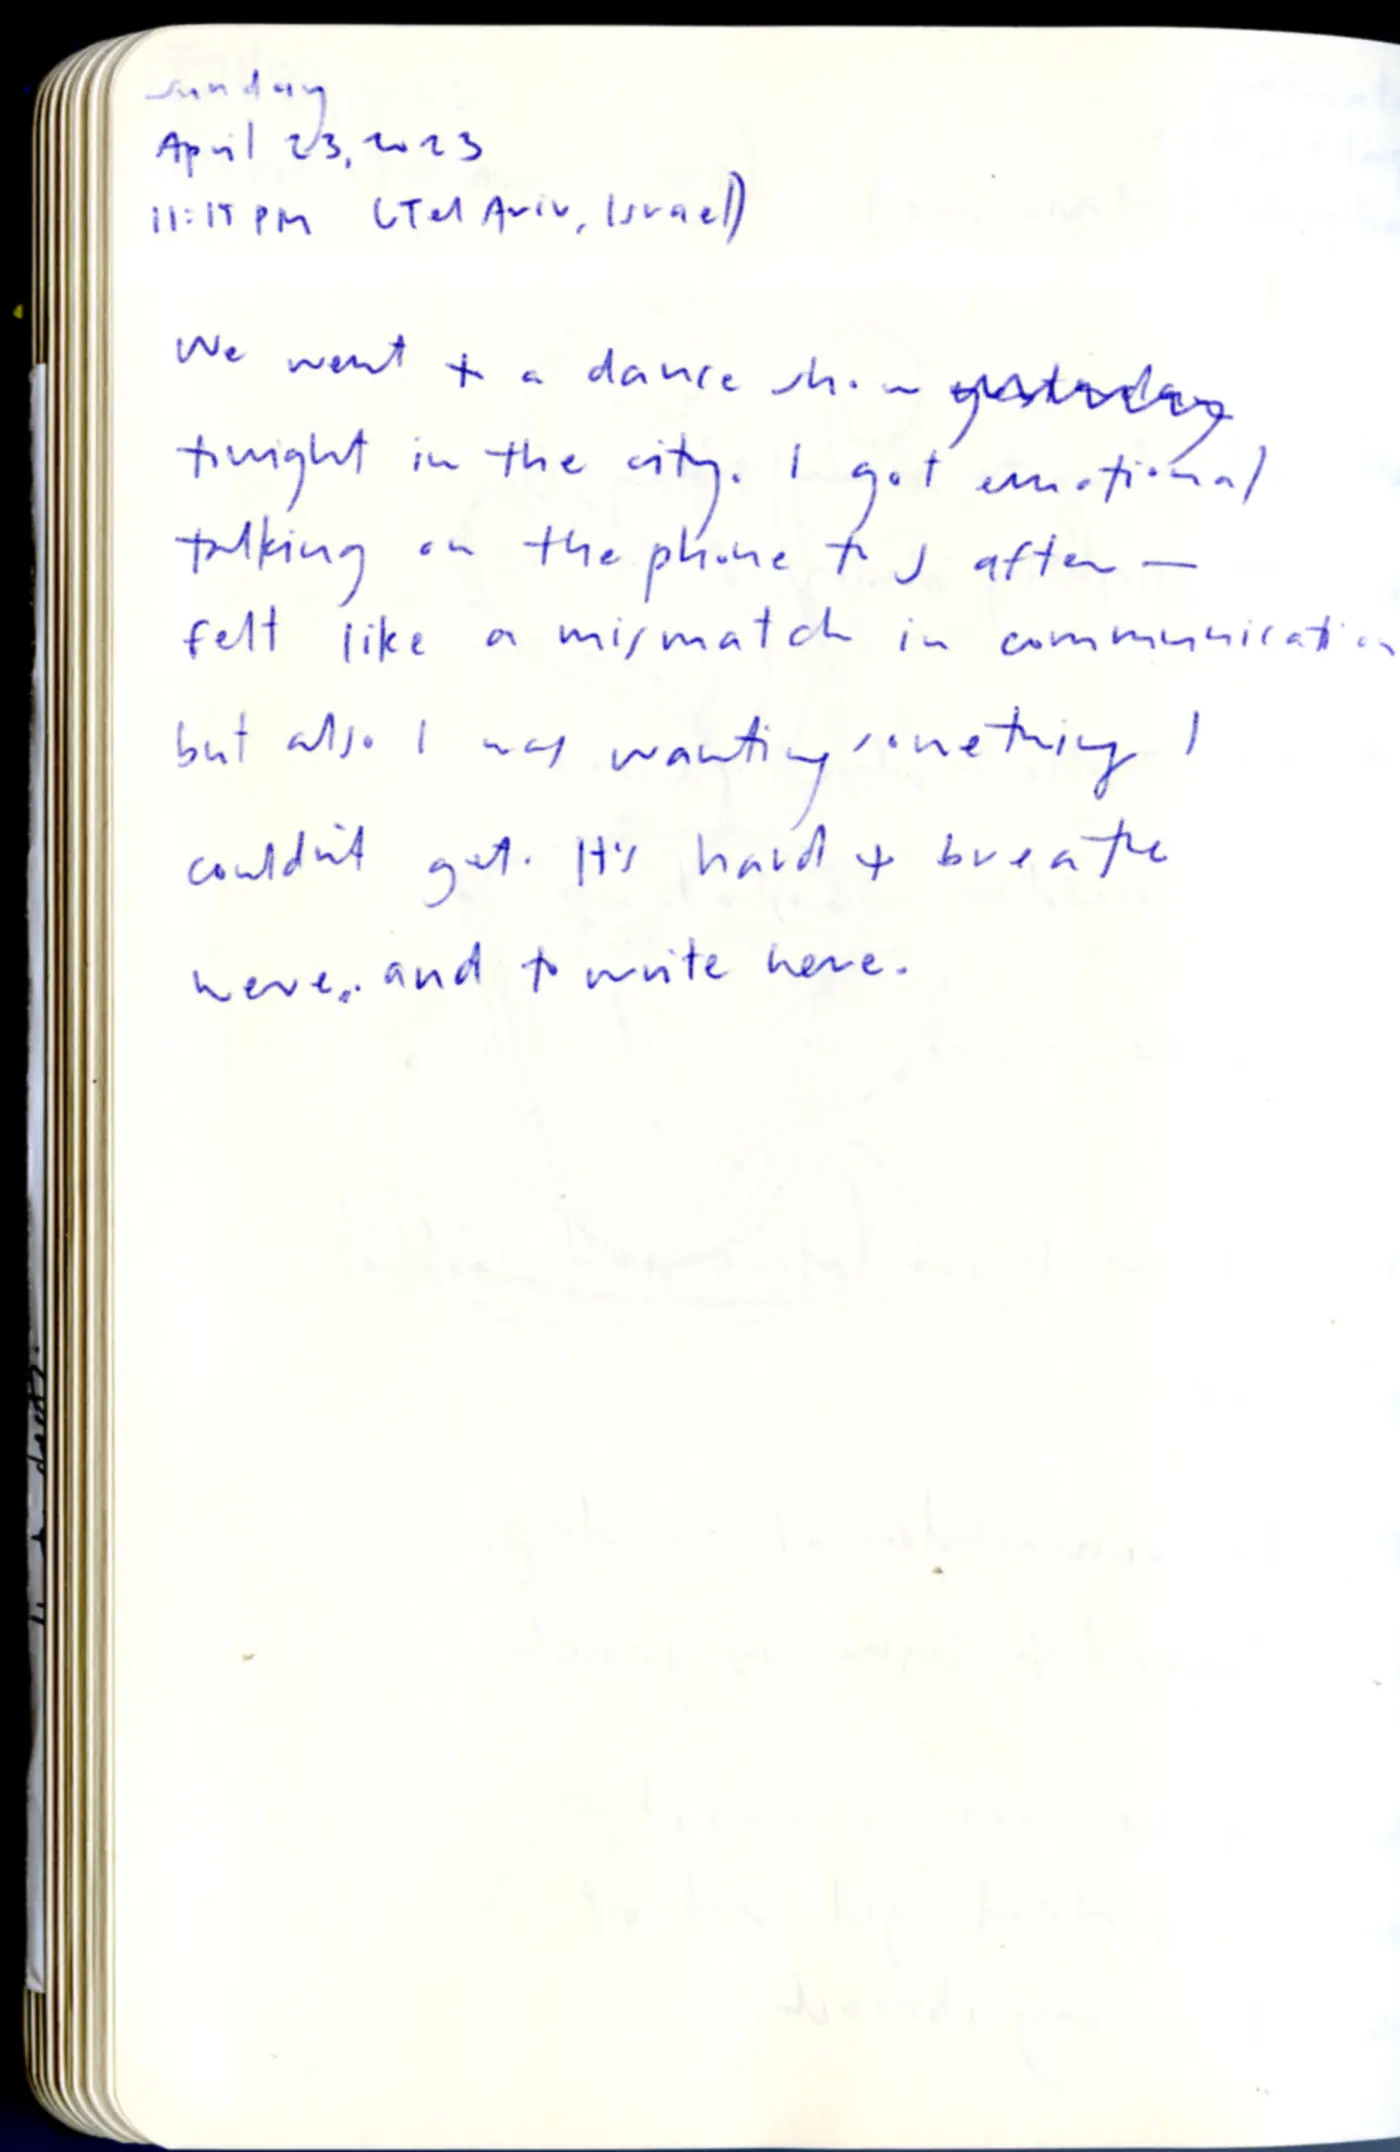 sunday
April 23, 2023
11:15 PM (Tel Aviv, Israel)
We went to a dance show yesterday
tonight in the city. I got emotional
talking on the phone to J after —
felt like a mismatch in communication
but also I was wanting something I
couldn't get. It's hard to breathe
here, and to write here.